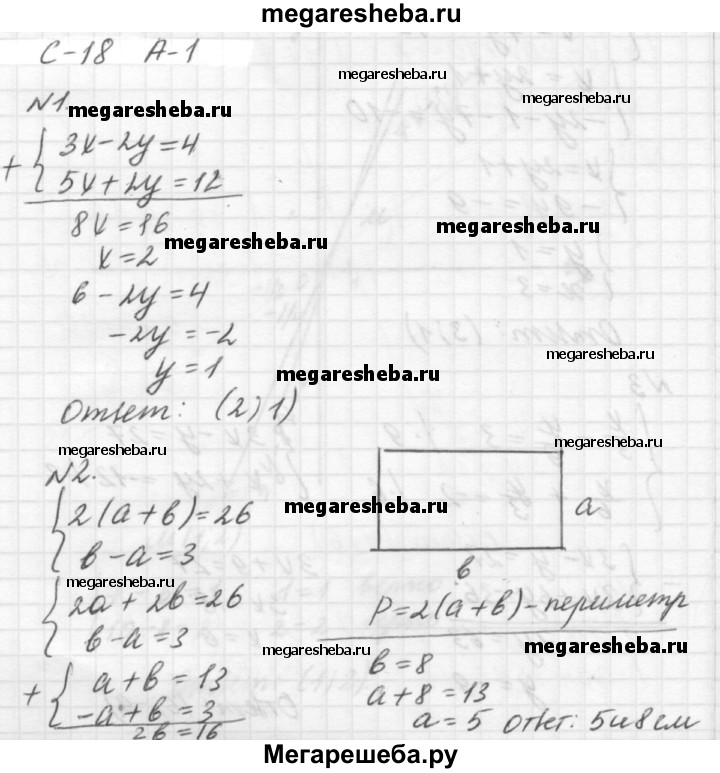 megaresheba.ru
С-18 А-1
megaresheba.ru
megaresheba.ru
№1.
megaresheba.ru
+ { 3x-2y=4
5x+2y=12
8x=16
megaresheba.ru
megaresheba.ru
x=2
6-2y=4
-2y=-2
megaresheba.ru
y=1
megaresheba.ru
Ответ: (2;1)
megaresheba.ru
megaresheba.ru
№2.
{ 2(a+b)=26
b-a=3
megaresheba.ru
a
b
{ 2a+2b=26
b-a=3
P=2(a+b)-периметр
megaresheba.ru
megaresheba.ru
+ { a+b=13
-a+b=3
2b=16
b=8
a+8=13
a=5 Ответ: 5и8см
Мегарешеба.ру